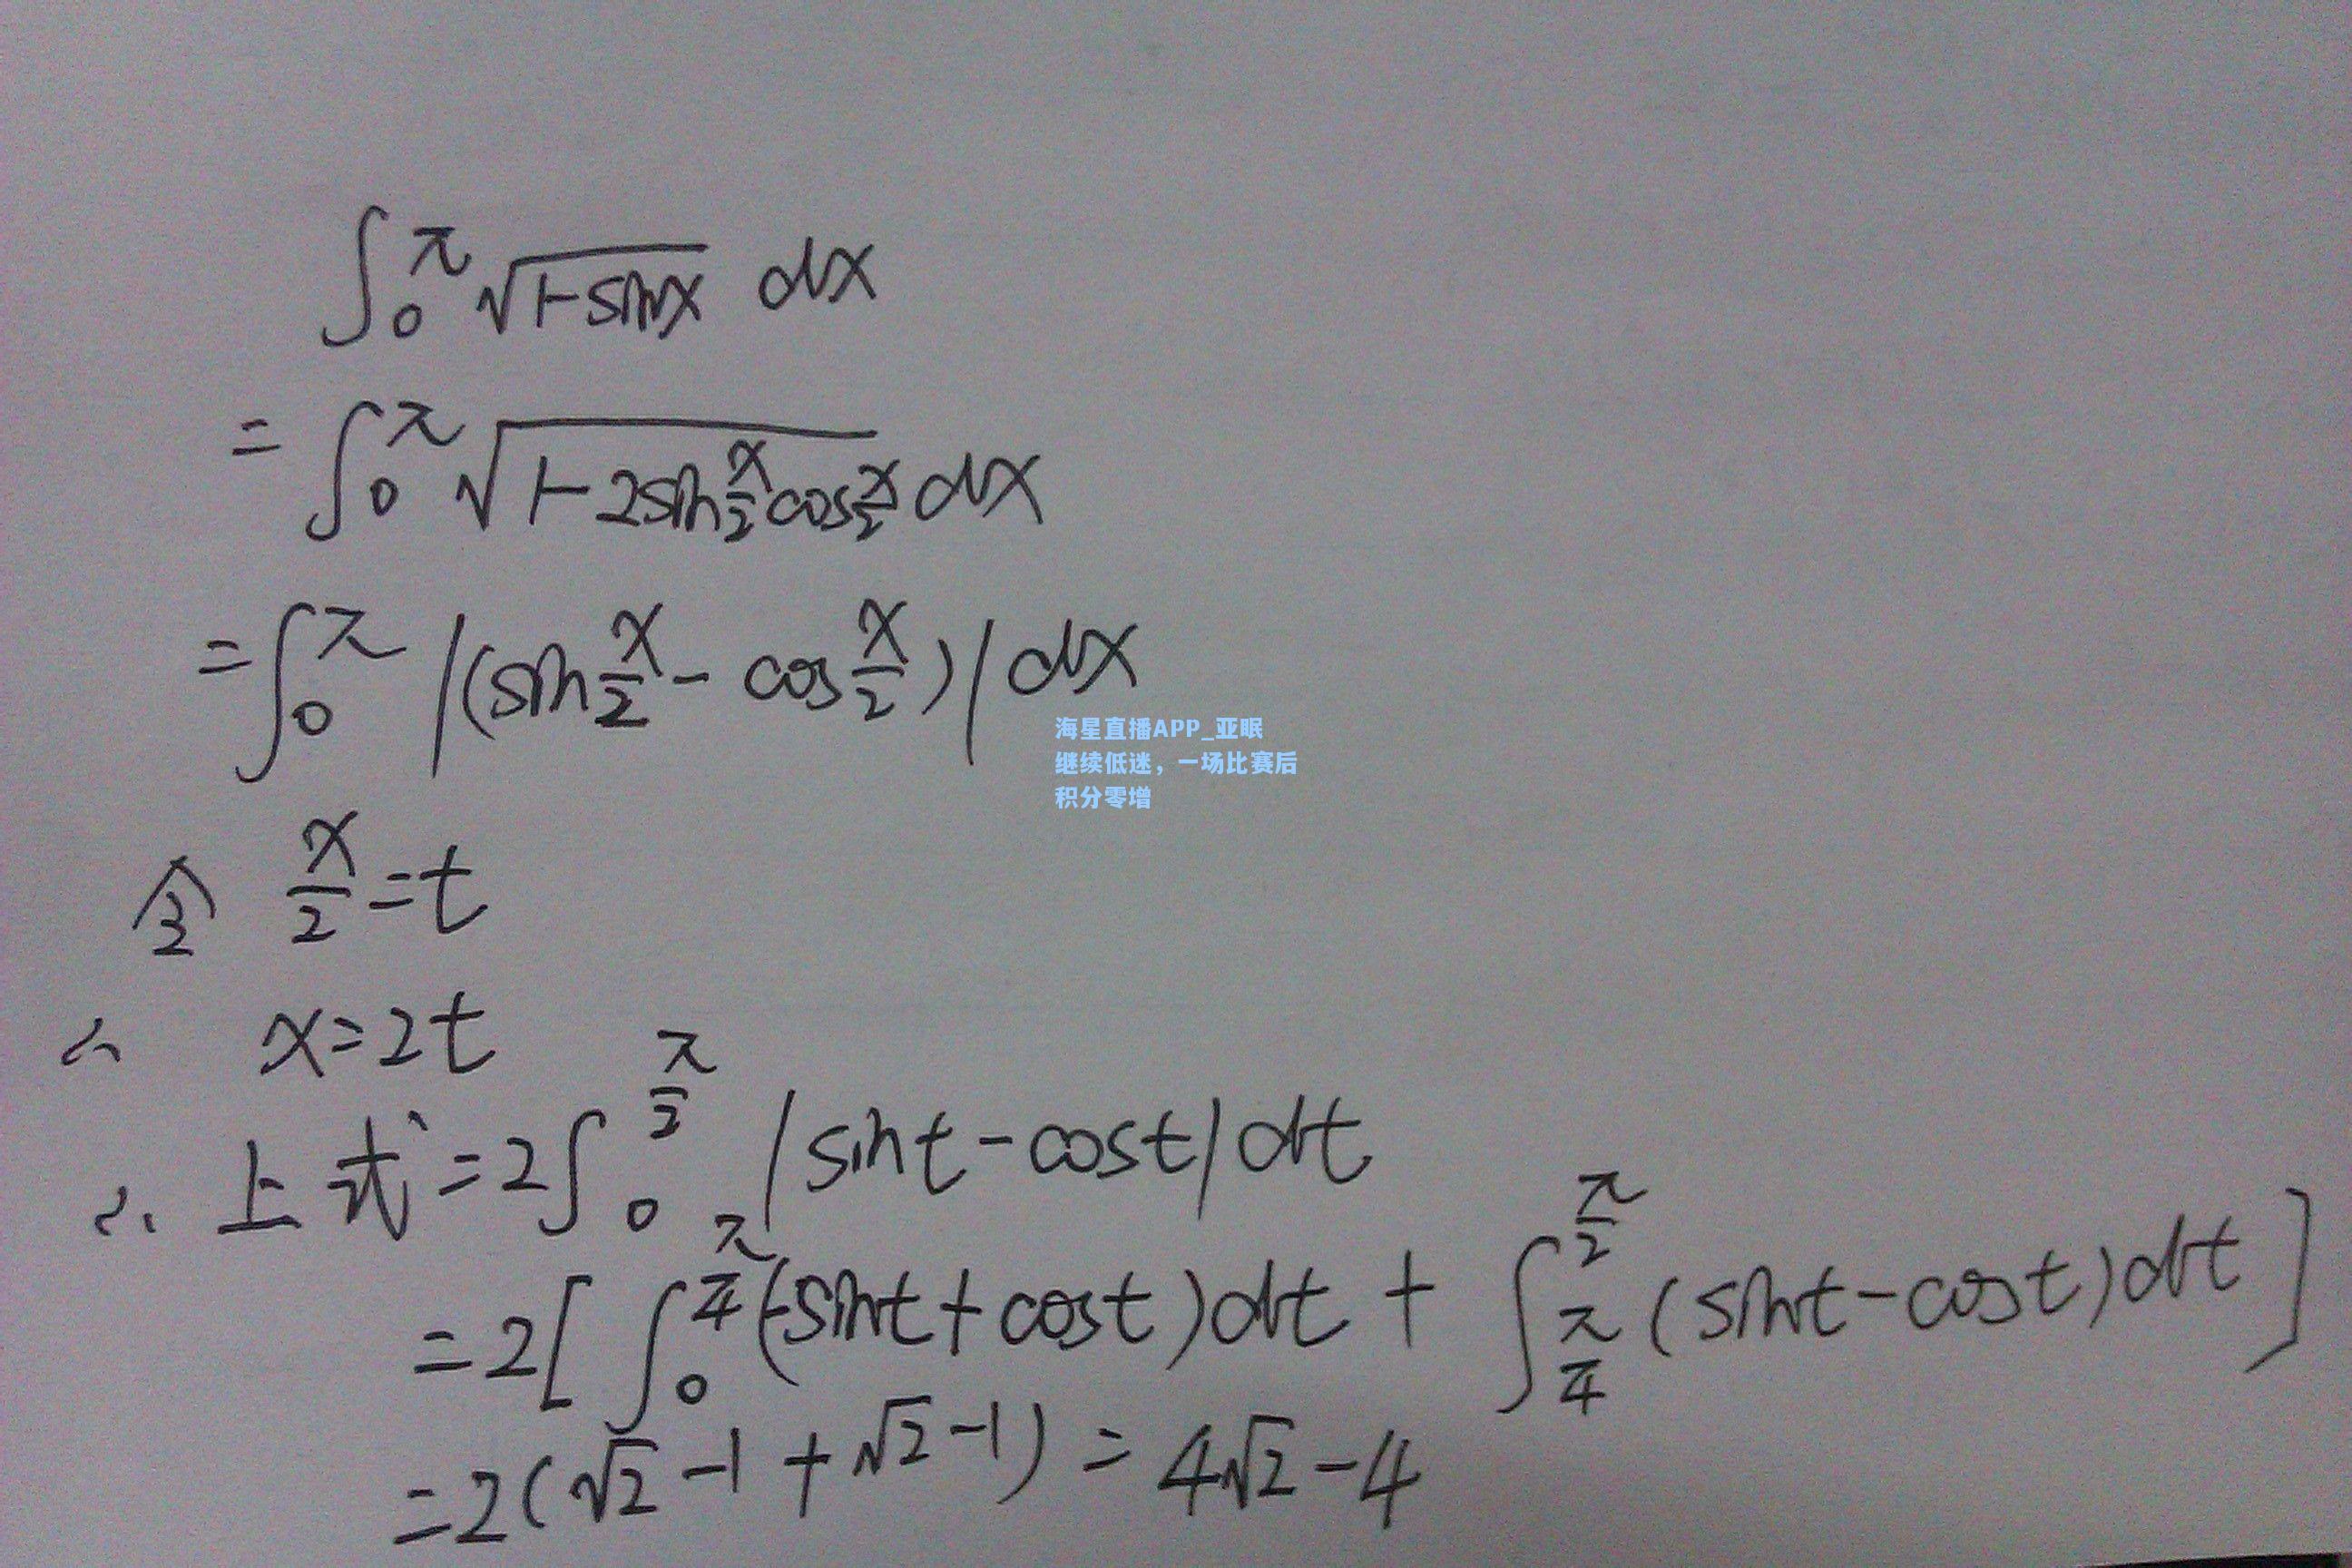 ∫₀^π √(1-sinx) dx
= ∫₀^π √(1-2sin x/2 cos x/2) dx
= ∫₀^π |(sin x/2 - cos x/2)| dx
海星直播APP_亚眠
继续低迷，一场比赛后
积分零增
令 x/2 = t
∴ x=2t
∴ 上式 = 2∫₀^(π/2) |sint-cost| dt
= 2[∫₀^(π/4) (-sint+cost)dt + ∫_(π/4)^(π/2) (sint-cost)dt]
= 2(√2 -1 + √2 -1) = 4√2 -4